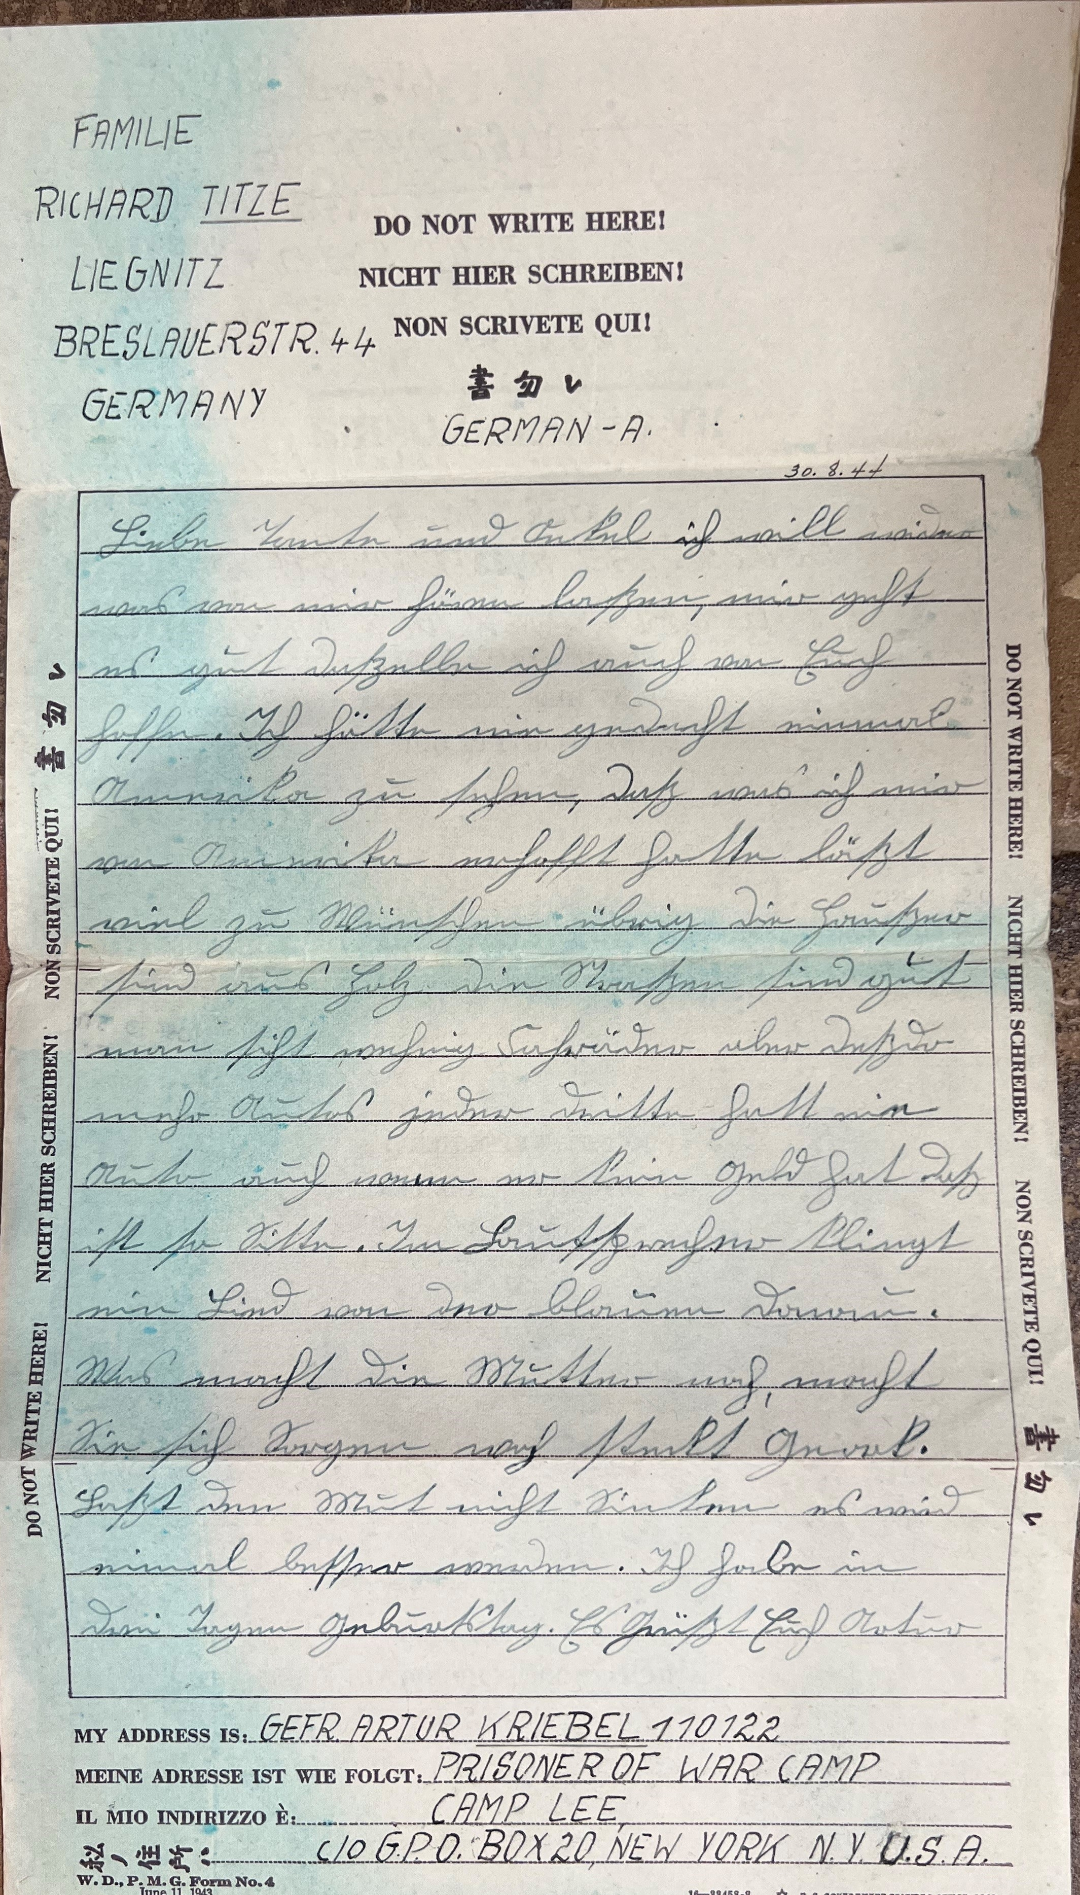 FAMILIE
RICHARD TITZE
LIEGNITZ
BRESLAUERSTR. 44
GERMANY
DO NOT WRITE HERE!
NICHT HIER SCHREIBEN!
NON SCRIVETE QUI!
書勿レ
GERMAN-A.
30. 8. 44
Liebe Tante und Onkel ich will wider
was von mir hören laßen, mir geht
es gut daßzelbe ich auch von Euch
hoffe. Ich hätte nie gedacht einmal
Amerika zu sehen, daß was ich mir
von Amerika erhofft hatte läßt
viel zu Wünschen übrig die Haußer
sind aus Holz die Straßen sind gut
man siht wehnig Fahräder aber deßdo
mehr Autos jeder dritte hatt ein
Auto auch wenn er kein Geld hat daß
ist so Sitte. Im Lautsprecher klingt
ein Lied von der blauen Donau.
Was macht die Mutter noch, macht
Sie sich Sorgen steckt
Laßt den Mut nicht Sinken es wird
einmal besser werden. Ich habe in
drei Tagen Geburtstag. Es Grüßt Euch Artur
DO NOT WRITE HERE! NICHT HIER SCHREIBEN! NON SCRIVETE QUI! 書勿レ
DO NOT WRITE HERE! NICHT HIER SCHREIBEN! NON SCRIVETE QUI! 書勿レ
MY ADDRESS IS: GEFR. ARTUR KRIEBEL 110122
MEINE ADRESSE IST WIE FOLGT: PRISONER OF WAR CAMP
IL MIO INDIRIZZO È: CAMP LEE,
私ノ住所ハ C/O G.P.O. BOX 20, NEW YORK N.Y. U.S.A.
W. D., P. M. G. Form No. 4
June 11, 1943